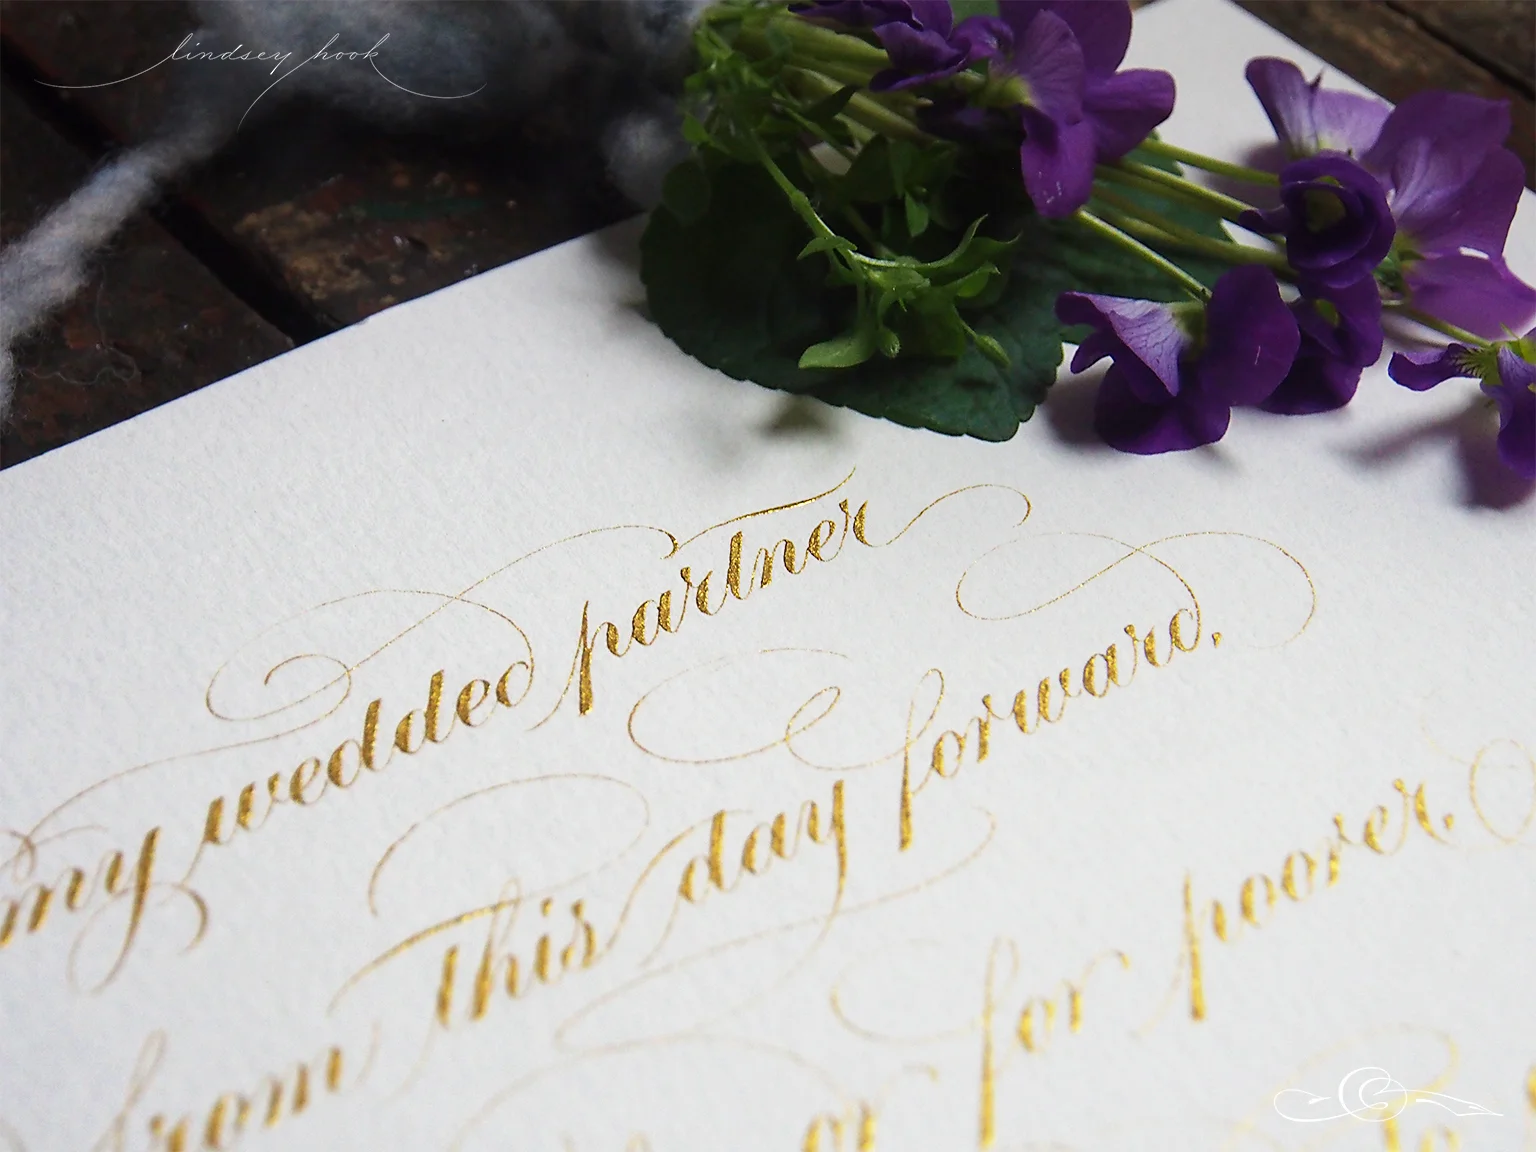 lindsey hook
my wedded partner
from this day forward,
or for poorer,
to